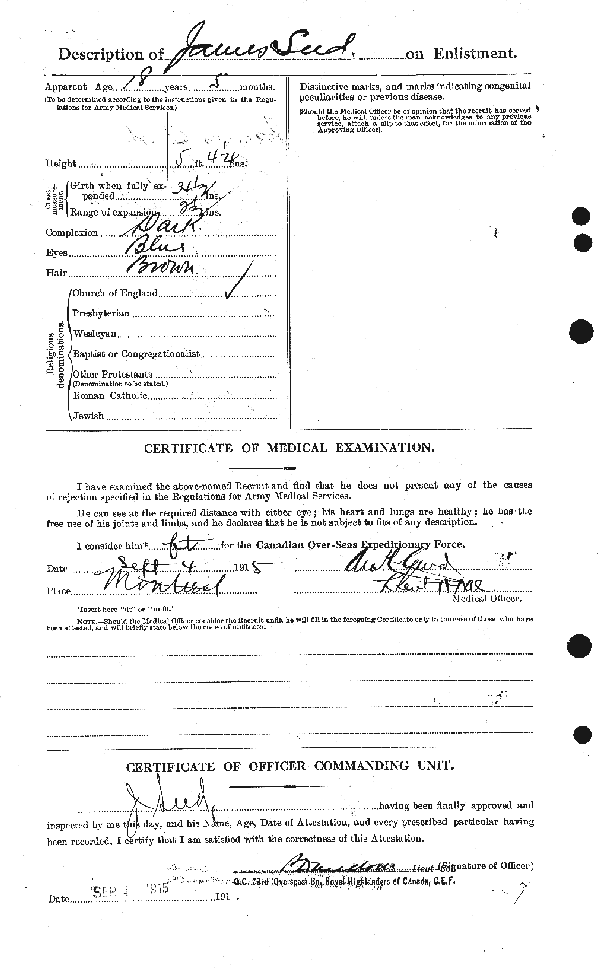 Description of James Seed. on Enlistment.
Apparent Age 18 years 5 months.
(To be determined according to the instructions given in the Regulations for Army Medical Services.)
Height 5 ft. 4 ins.
Chest measurement
Girth when fully expanded 34½ ins.
Range of expansion 2½ ins.
Complexion Dark
Eyes Blue
Hair Brown
Religious denominations
Church of England ✓
Presbyterian
Wesleyan
Baptist or Congregationalist
Other Protestants
(Denomination to be stated.)
Roman Catholic
Jewish
Distinctive marks, and marks indicating congenital
peculiarities or previous disease.
(Should the Medical Officer be of opinion that the recruit has served
before, he will, unless the man acknowledges to any previous
service, attach a slip to that effect, for the information of the
Approving Officer).
CERTIFICATE OF MEDICAL EXAMINATION.
I have examined the above-named Recruit and find that he does not present any of the causes
of rejection specified in the Regulations for Army Medical Services.
He can see at the required distance with either eye; his heart and lungs are healthy; he has the
free use of his joints and limbs, and he declares that he is not subject to fits of any description.
I consider him* fit for the Canadian Over-Seas Expeditionary Force.
Date Sept 4 1915
Place Montreal
Medical Officer.
*Insert here "fit" or "unfit."
NOTE.—Should the Medical Officer consider the Recruit unfit, he will fill in the foregoing Certificate only in the case of those who have
been attested, and will briefly state below the cause of unfitness:—
CERTIFICATE OF OFFICER COMMANDING UNIT.
J Seed, having been finally approved and
inspected by me this day, and his Name, Age, Date of Attestation, and every prescribed particular having
been recorded, I certify that I am satisfied with the correctness of this Attestation.
Lieut-Col. (Signature of Officer)
O.C. 73rd Overseas Bn. Royal Highlanders of Canada, C.E.F.
Date SEP 1915 191